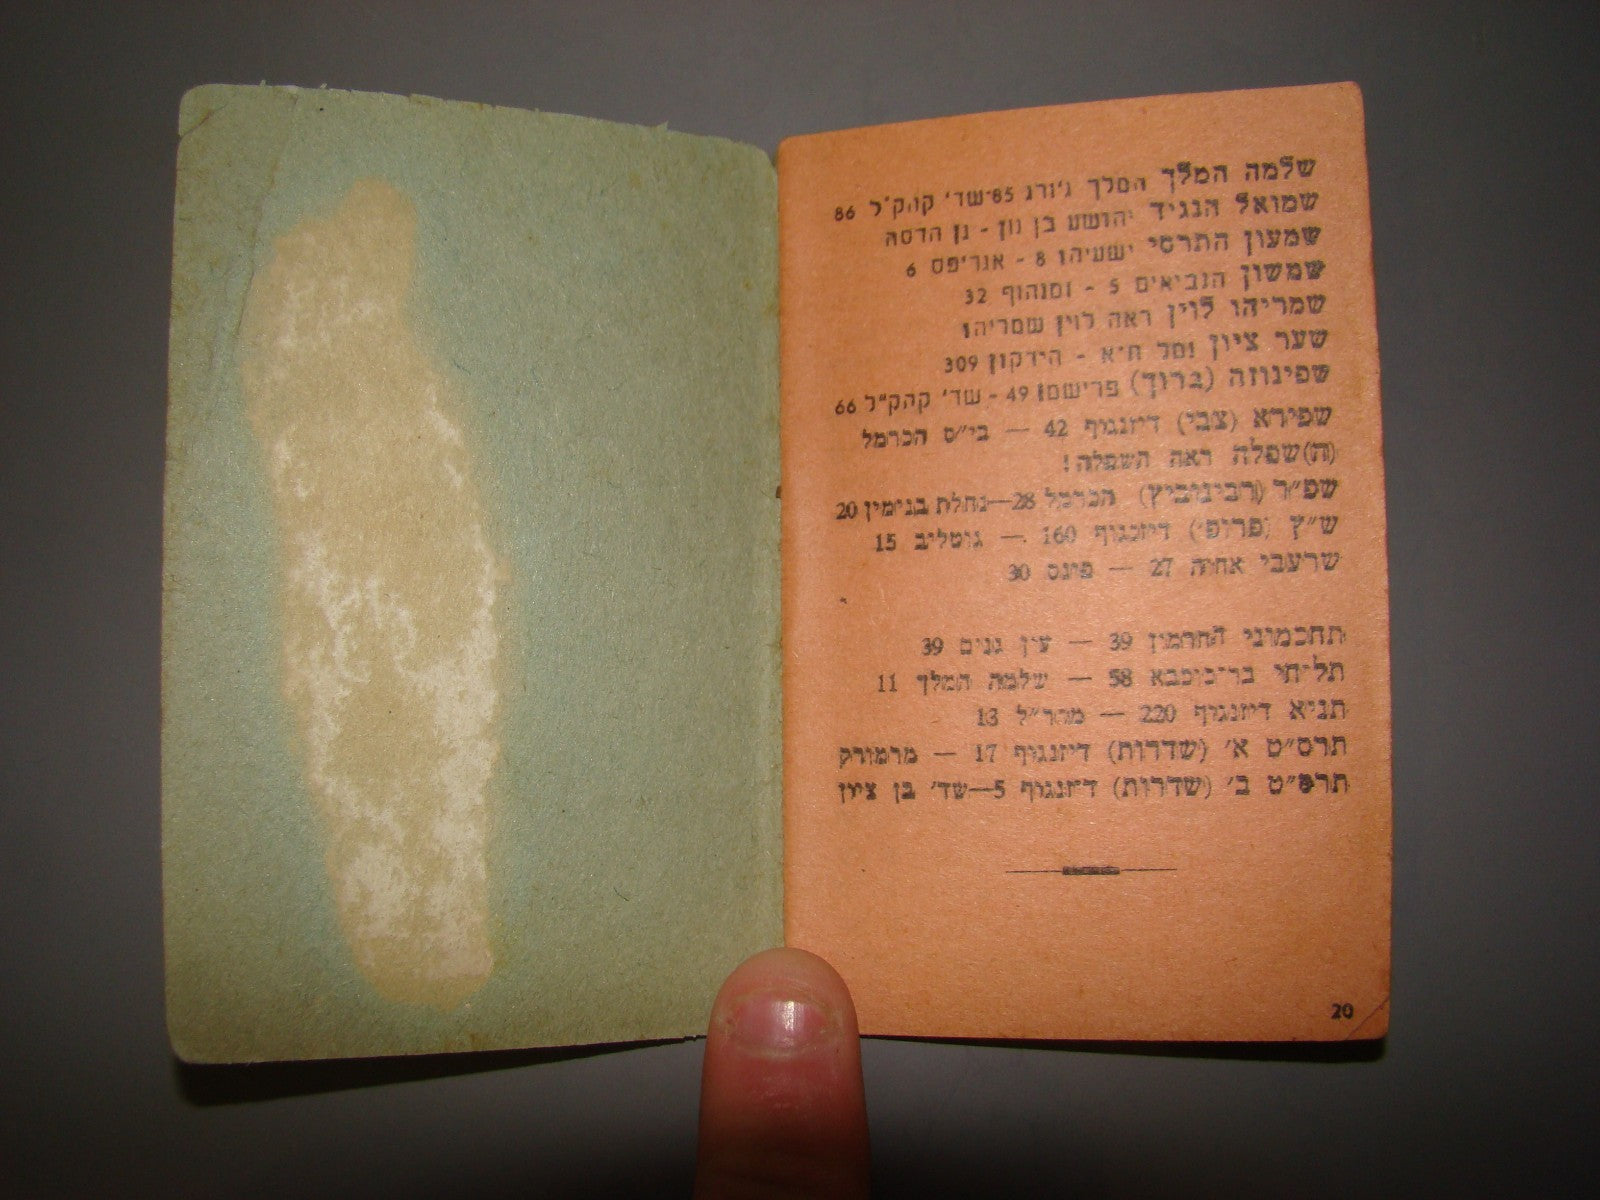 שלמה המלך המלך ג'ורג 85-שד' קהק"ל 86
שמואל הנגיד יהושע בן נון - גן הדסה
שמעון התרסי ישעיהו 8 - אגריפס 6
שמשון הנביאים 5 - זמנהוף 32
שמריהו לוין ראה לוין שמריהו
שער ציון נמל ת"א - הירקון 309
שפינוזה (ברוך) פרישמן 49 - שד' קהק"ל 66
שפירא (צבי) דיזנגוף 42 — בי"ס הכרמל
(ה)שפלה ראה השפלה!
שפ"ר (רבינוביץ) הכרמל 28—נחלת בנימין 20
ש"ץ (פרופ') דיזנגוף 160 — גוטליב 15
שרעבי אחוה 27 — פינס 30
תחכמוני החרמון 39 — עין גנים 39
תל־חי בר־כוכבא 58 — שלמה המלך 11
תניא דיזנגוף 220 — מהר"ל 13
תרס"ט א' (שדרות) דיזנגוף 17 — מרמורק
תרס"ט ב' (שדרות) דיזנגוף 5—שד' בן ציון
20